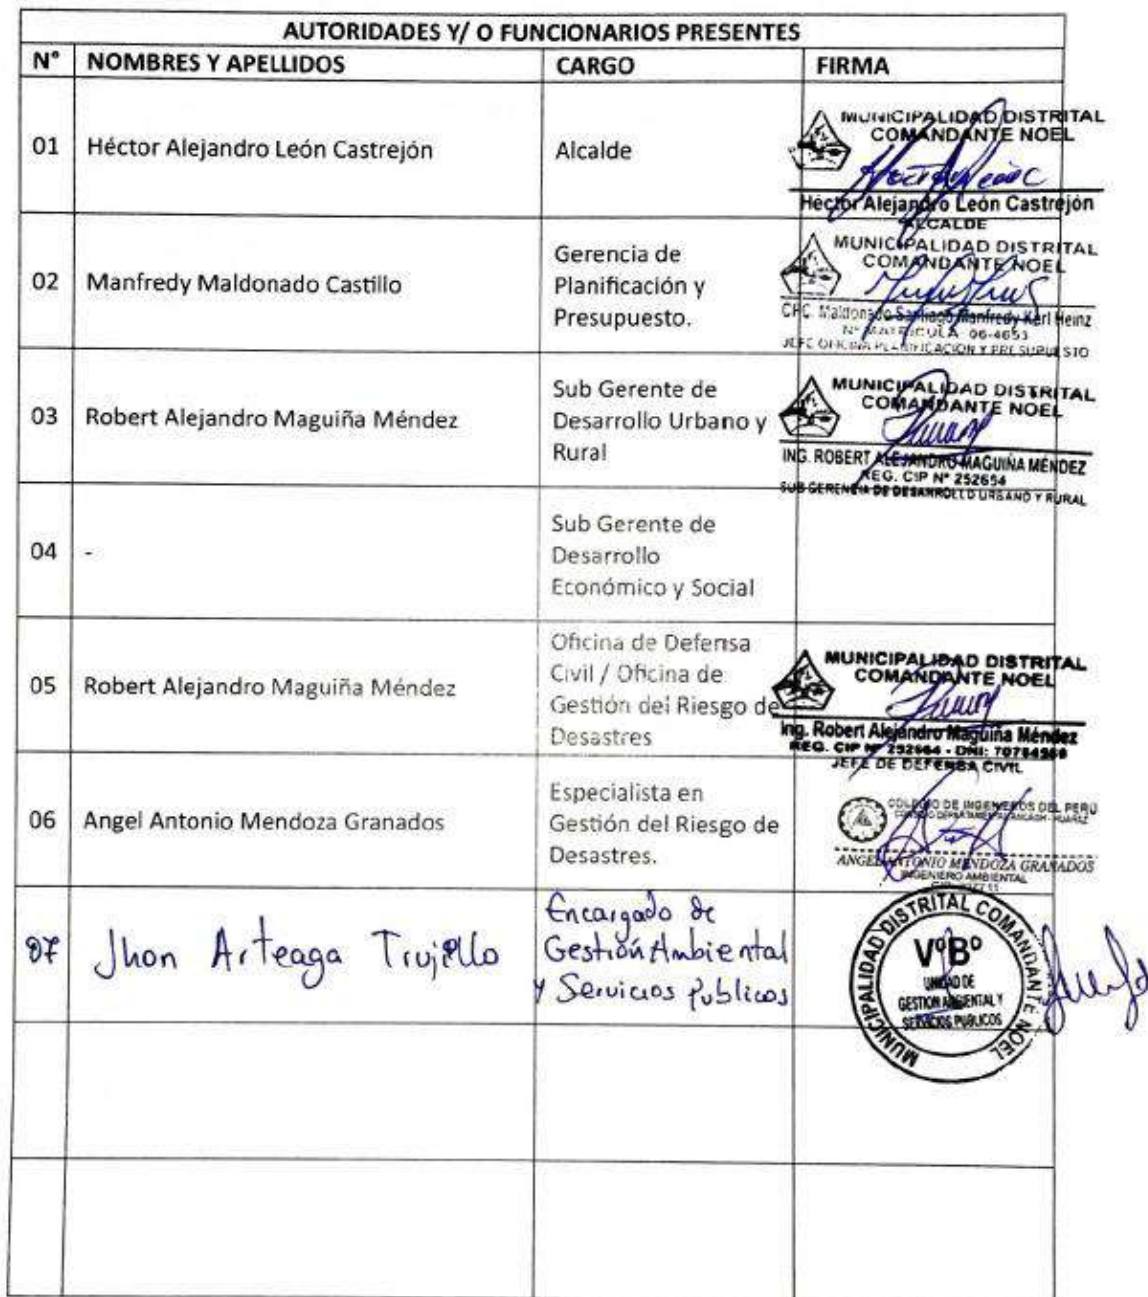 AUTORIDADES Y/ O FUNCIONARIOS PRESENTES
N° NOMBRES Y APELLIDOS CARGO FIRMA
01 Héctor Alejandro León Castrejón Alcalde
MUNICIPALIDAD DISTRITAL
COMANDANTE NOEL
Héctor Alejandro León Castrejón
ALCALDE
02 Manfredy Maldonado Castillo
Gerencia de
Planificación y
Presupuesto.
MUNICIPALIDAD DISTRITAL
COMANDANTE NOEL
CPC. Maldonado Santiago Manfredy Karl Heinz
N° MATRICULA 06-4653
JEFE OFICINA PLANIFICACION Y PRESUPUESTO
03 Robert Alejandro Maguiña Méndez
Sub Gerente de
Desarrollo Urbano y
Rural
MUNICIPALIDAD DISTRITAL
COMANDANTE NOEL
ING. ROBERT ALEJANDRO MAGUIÑA MÉNDEZ
REG. CIP N° 252654
SUB GERENCIA DE DESARROLLO URBANO Y RURAL
04 -
Sub Gerente de
Desarrollo
Económico y Social
05 Robert Alejandro Maguiña Méndez
Oficina de Defensa
Civil / Oficina de
Gestión del Riesgo de
Desastres
MUNICIPALIDAD DISTRITAL
COMANDANTE NOEL
Ing. Robert Alejandro Maguiña Méndez
REG. CIP N° - DNI:
JEFE DE DEFENSA CIVIL
06 Angel Antonio Mendoza Granados
Especialista en
Gestión del Riesgo de
Desastres.
COLEGIO DE INGENIEROS DEL PERÚ
CONSEJO DEPARTAMENTAL ANCASH - HUARAZ
ANGEL ANTONIO MENDOZA GRANADOS
INGENIERO AMBIENTAL
07 Jhon Arteaga Trujillo
Encargado de
Gestión Ambiental
y Servicios publicos
MUNICIPALIDAD DISTRITAL COMANDANTE NOEL
V°B°
UNIDAD DE
GESTION AMBIENTAL Y
SERVICIOS PUBLICOS